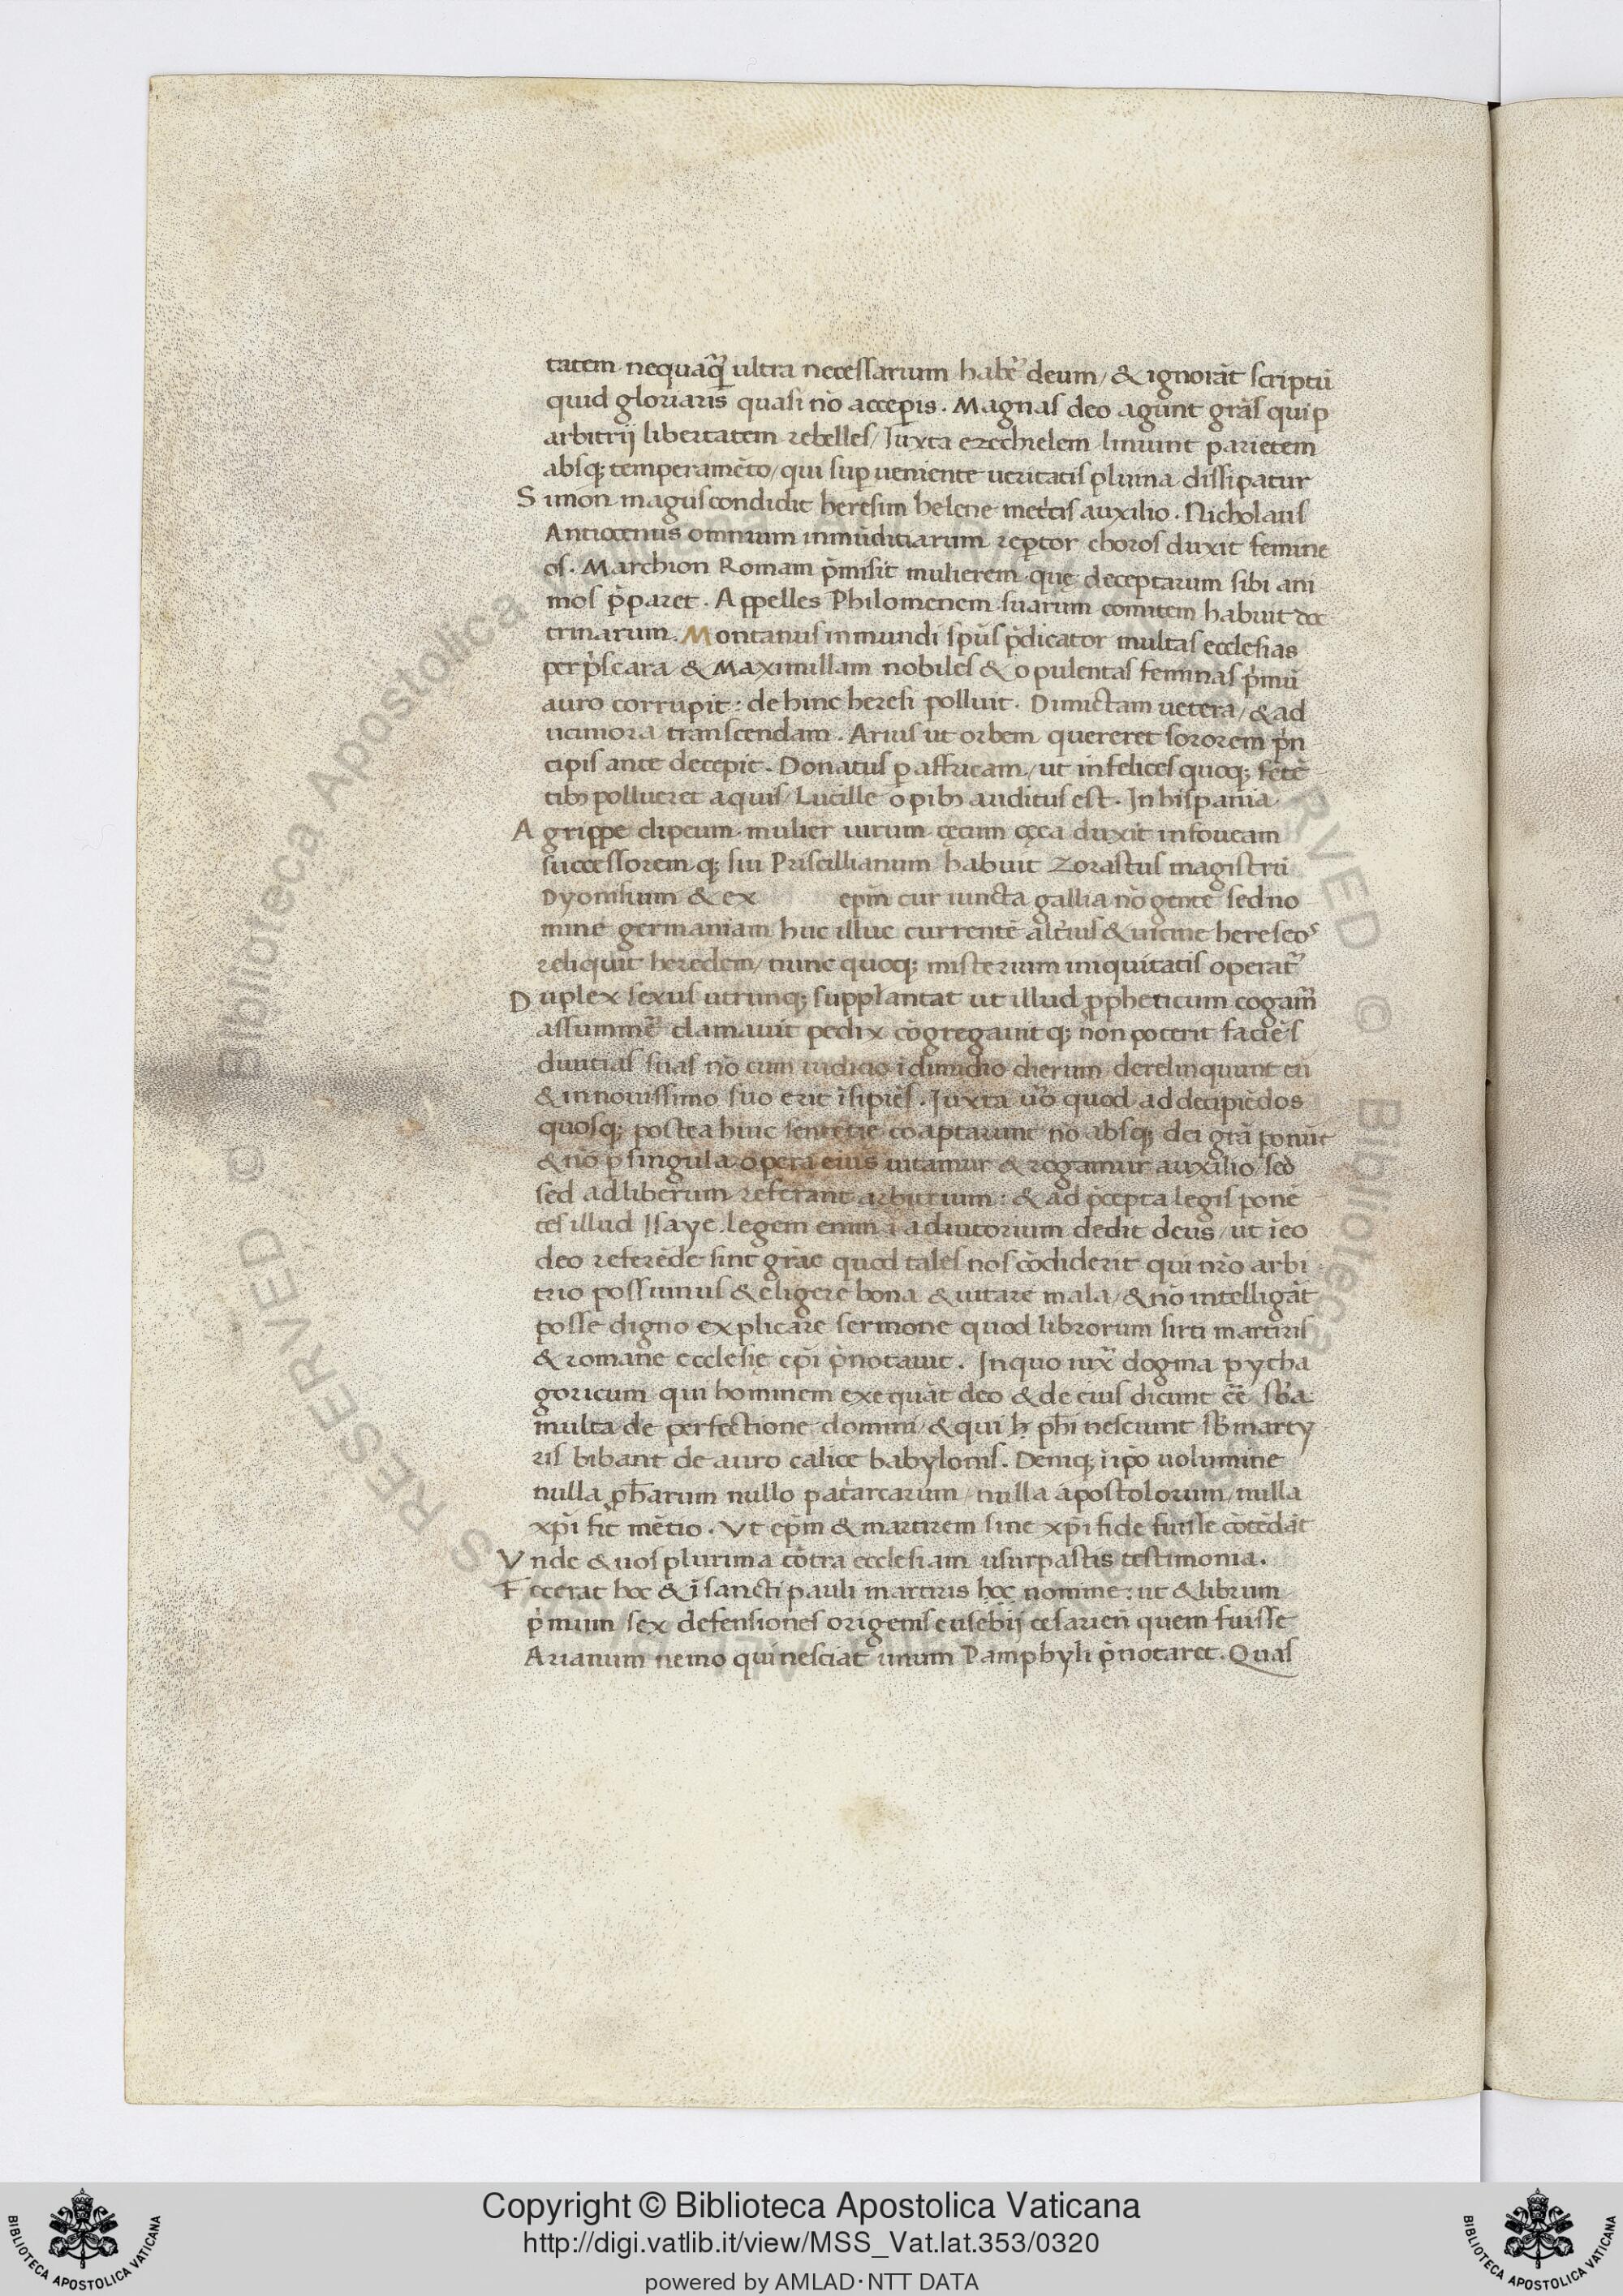 tatem nequaq̄ȝ ultra necessarium habe᷑ deum / & ignorāt scriptū
quid gloriaris quasi nō acceꝑis . Magnas deo agunt grās qui ꝑ
arbitrij libertatem rebelles / Iuxta ezechielem liniunt parietem
absqꝫ temperamēto / qui suꝑueniente ueritatis pluuia dissipatur
Simon magus condidit heresim helene met̄cis auxilio . Nicholaus
Antiocenus omnium inmūditiarum reꝑtor choros duxit femine
os . Marchion Romam p̄misit mulierem que deceptarum sibi ani
mos p̄pararet . Appelles Philomenem suarum comitem habuit doc
trinarum . Montanus inmundi sp̄us p̄dicator multas ecclesias
per p̄scara & Maximillam nobiles & opulentas feminas p̍mū
auro corrupit : dehinc heresi polluit . Dimictam uetera / & ad
uiciniora transcendam . Arius ut orbem quereret sororem p̍n
cipis ante decepit . Donatus ꝑ affricam / ut infelices quoqꝫ fētē
tibꝫ pollueret aquis / Lucille opibꝫ auditus est . In hispania
Agrippe clipeum mulier uirum cęcum cęca duxit in foueam
successoremqꝫ sui Priscillianum habuit Zorastus magistrū
Dyonisium & ex epīm cur iuncta gallia nō gente sed no
mine germaniam huc illuc currentē alt̄ius & uicine hereseos
reliquit heredem / nunc quoqꝫ misterium iniquitatis operat᷑
Duplex sexus utrunqꝫ supplantat ut illud ꝓpheticum cogam̄
assumme᷑ clamauit pedix cōgregauitqꝫ non poterit faciēs
diuitias suas nō cum iudicio i dimidio dierum derelinquunt eū
& in nouissimo suo erit īsipiēs . Iuxta u̍o quod ad decipiēdos
quosqꝫ postea huic sentētie coaptarunt nō absqꝫ dei grā ponūt
& nō ꝑ singula opera eius uitamur & rogamur auxilio / sed
sed ad liberum referant arbitrium : & ad p̄cepta legis ponē
tes illud Isaye . legem enim i adiutorium dedit deus / ut i eo
deo referēde sint grāe quod tales nos cōdiderit qui nr̄o arbi
trio possumus & eligere bona & uitare mala / & nō intelligāt
posse digno explicare sermone quod librorum sirti martiris
& romane ecclesię epī p̄notauit . In quo iux̄ dogma pytha
goricum qui hominem exequāt deo & de eius dicunt eē sb̄a
multa de perfectione domini / & qui ħ ph̄i nesciunt sb̄ marty
ris bibant de auro calice babylonis . Deniqꝫ i ip̄o uolumine
nulla ꝓph̄arum nullo pat̍arcarum / nulla apostolorum / nulla
xp̄i fit mētio . Vt ep̄m & martirem sine xp̄i fide fuisse cōtēdāt
Vnde & uos plurima cōtra ecclesiam usurpastis testimonia .
Fecerat hoc & ī sancti pauli martiris hoc nomine : ut & librum
p̍mum sex defensiones origenis eusebij cesarieñ quem fuisse
Arianum nemo qui nesciat unum Pamphyli p̄notaret . Quas
Copyright © Biblioteca Apostolica Vaticana
http://digi.vatlib.it/view/MSS_Vat.lat.353/0320
powered by AMLAD·NTT DATA
BIBLIOTECA APOSTOLICA VATICANA
BIBLIOTECA APOSTOLICA VATICANA